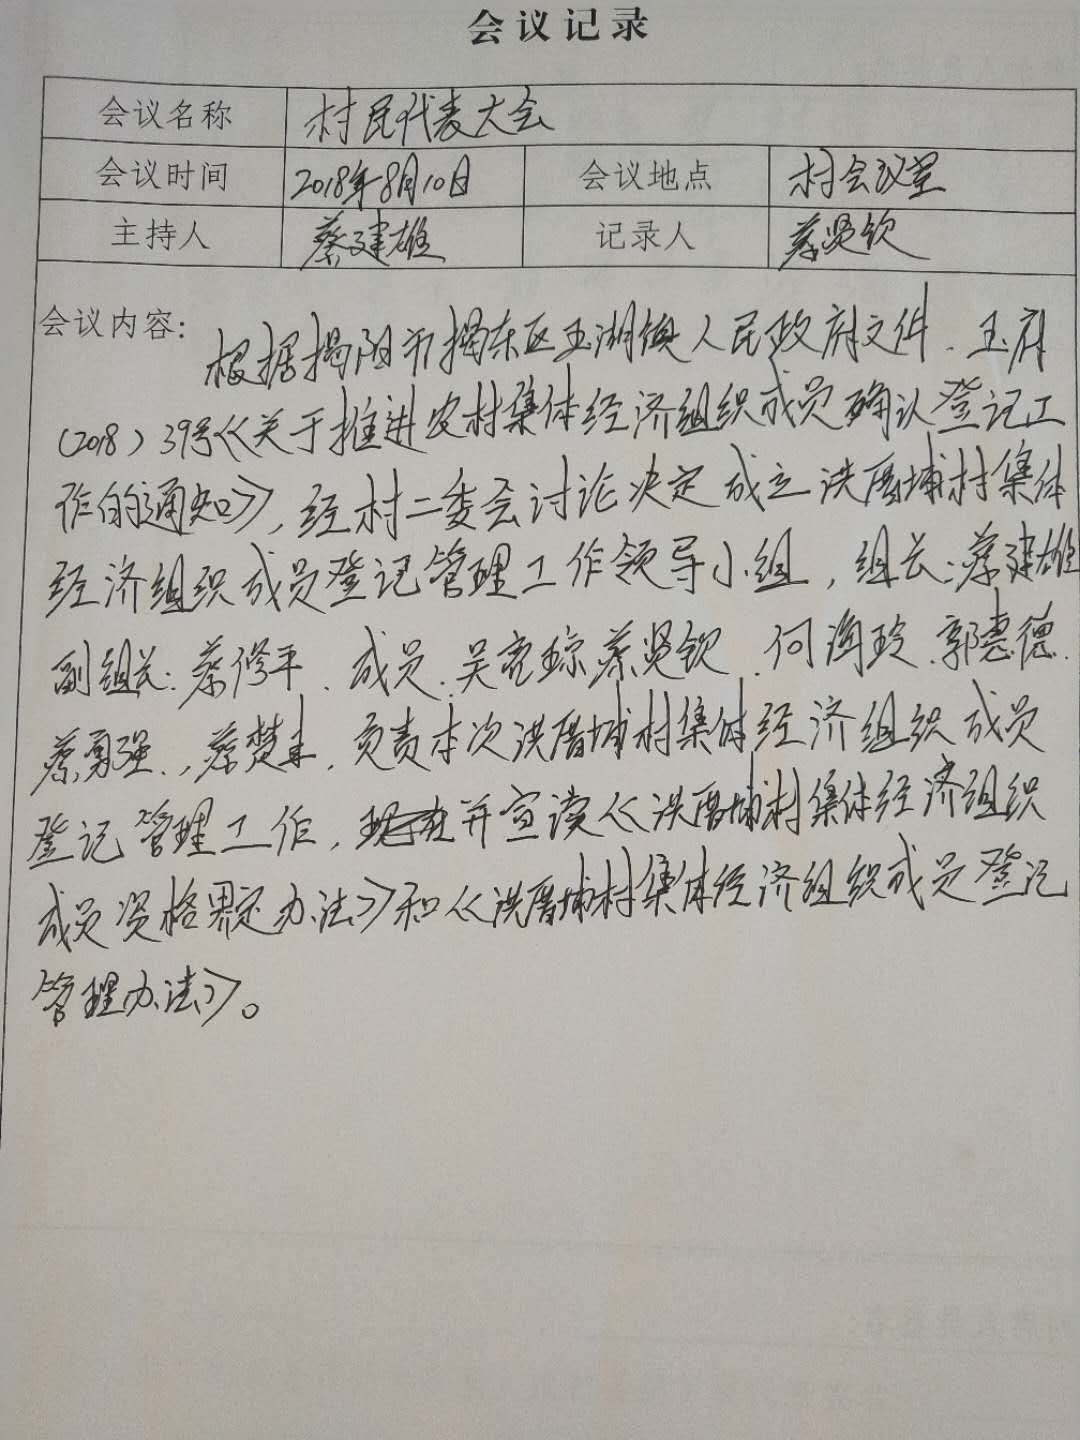 会议记录
会议名称 村民代表大会
会议时间 2018年8月10日 会议地点 村会议室
主持人 蔡建雄 记录人 蔡贤钦
会议内容: 根据揭阳市揭东区玉湖镇人民政府文件.玉府
(2018)39号《关于推进农村集体经济组织成员确认登记工
作的通知》,经村二委会讨论决定成立洪厝埔村集体
经济组织成员登记管理工作领导小组,组长:蔡建雄
副组长:蔡修平.成员.吴亮琼蔡贤钦.何海玲.郭惠德.
蔡勇强.,蔡楚丰,负责本次洪厝埔村集体经济组织成员
登记管理工作,并宣读《洪厝埔村集体经济组织
成员资格界定办法》和《洪厝埔村集体经济组织成员登记
管理办法》。